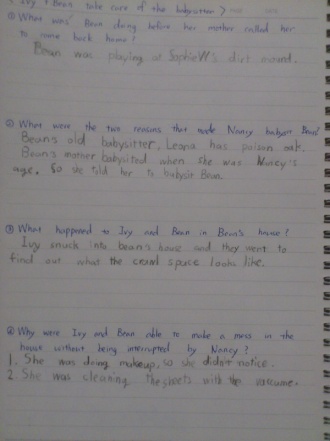 ( Ivy + Bean take care of the babysitter )
① What was Bean doing before her mother called her
to come back home?
Bean was playing at Sophie W's dirt mound.
② What were the two reasons that made Nancy babysit Bean?
Bean's old babysitter, Leona has poison oak.
Bean's mother babysited when she was Nancy's
age. So she told her to babysit Bean.
③ What happened to Ivy and Bean in Bean's house?
Ivy snuck into bean's house and they went to
find out what the crawl space looks like.
④ Why were Ivy and Bean able to make a mess in the
house without being interrupted by Nancy?
1. She was doing makeup, so she didn't notice.
2. She was cleaning the sheets with the vacume.